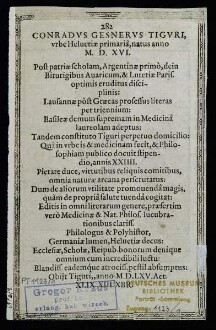 282
CONRADVS GESNERVS TIGVRI,
vrbe Heluetiæ primariâ, natus anno
M. D. XVI.
Post patriā scholam, Argentinæ primò, dein
Biturigibus Auaricum, & Lutetiæ Paris.
optimis eruditus disci-
plinis:
Lausannæ pōst Græcas professus literas
per triennium:
Basileæ demum supremam in Medicinâ
laureolam adeptus:
Tandem constituto Tiguri perpetuo domicilio:
Qui in vrbe is & medicinam fecit, & Philo-
sophiam publico docuit stipen-
dio, annis XXIIII.
Pietate duce, virtutibus reliquis comitibus,
omnia naturæ arcana perscrutatus:
Dum de aliorum vtilitate promouendâ magis,
quàm de propriâ salute tuendâ cogitat:
Editis in omni literarum genere, præsertim
verò Medicinæ & Nat. Philos. lucubra-
tionibus clariss.
Philologus & Polyhistor,
Germaniæ lumen, Heluetiæ decus:
Ecclesiæ, Scholæ, Reipub. bonorum denique
omnium cum incredibili luctu
Blandiss. eademque atrociss. peste absumptus:
Obijt Tiguri, anno M. D. LXV. Æt.
Gregor
DEUTSCHES MUSEUM
BIBLIOTHEK